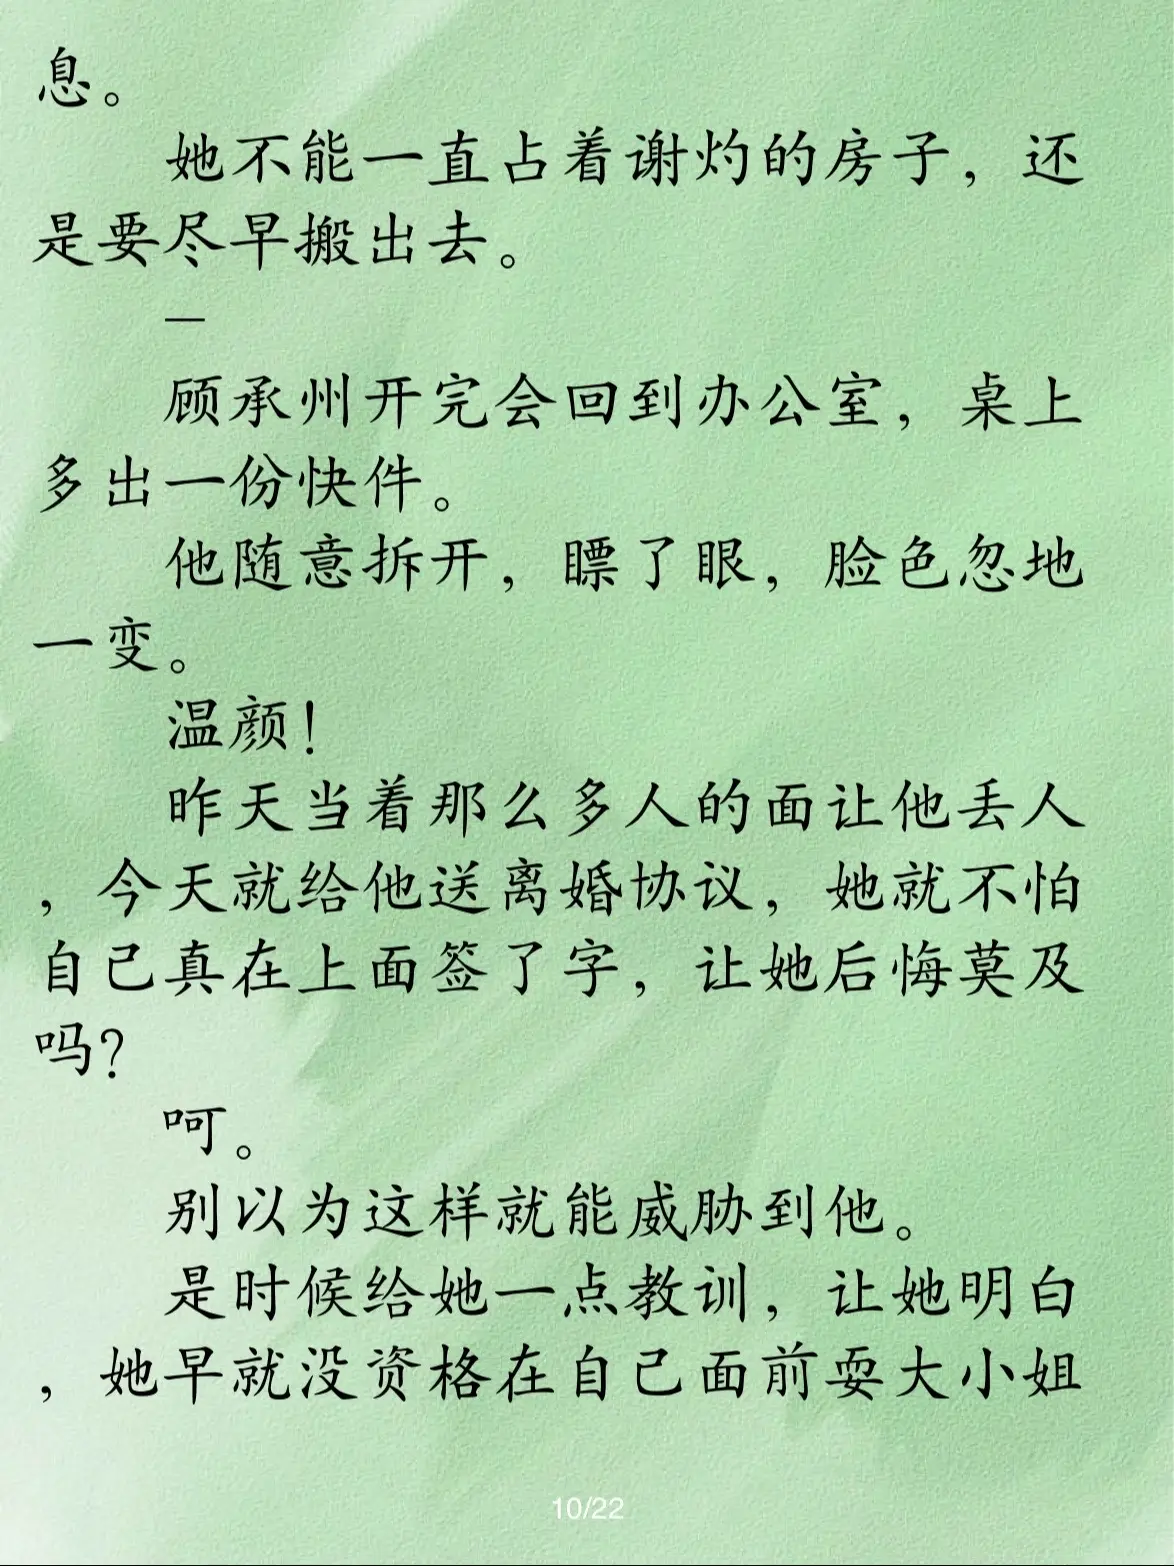 息。
她不能一直占着谢灼的房子，还
是要尽早搬出去。
—
顾承州开完会回到办公室，桌上
多出一份快件。
他随意拆开，瞟了眼，脸色忽地
一变。
温颜！
昨天当着那么多人的面让他丢人
，今天就给他送离婚协议，她就不怕
自己真在上面签了字，让她后悔莫及
吗？
呵。
别以为这样就能威胁到他。
是时候给她一点教训，让她明白
，她早就没资格在自己面前耍大小姐
10/22